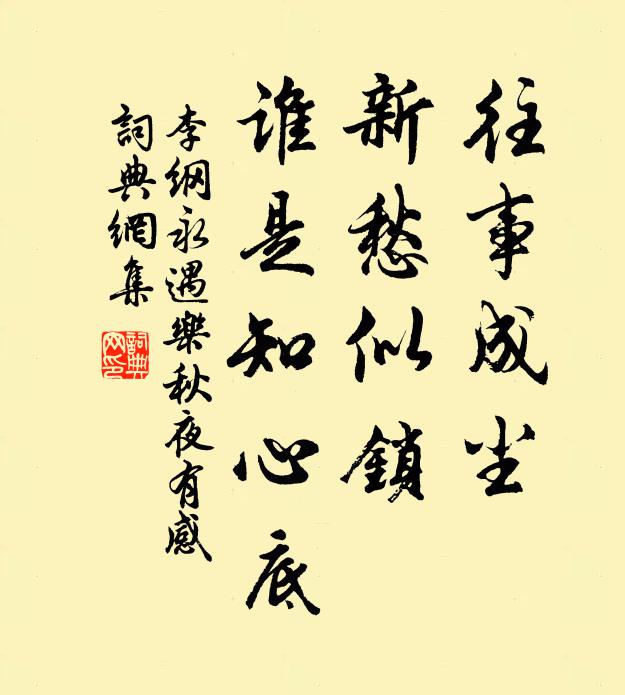 往事成尘
新愁似鎖
谁是知心底
李纲永遇樂秋夜有感
詞典網集
詞典网印